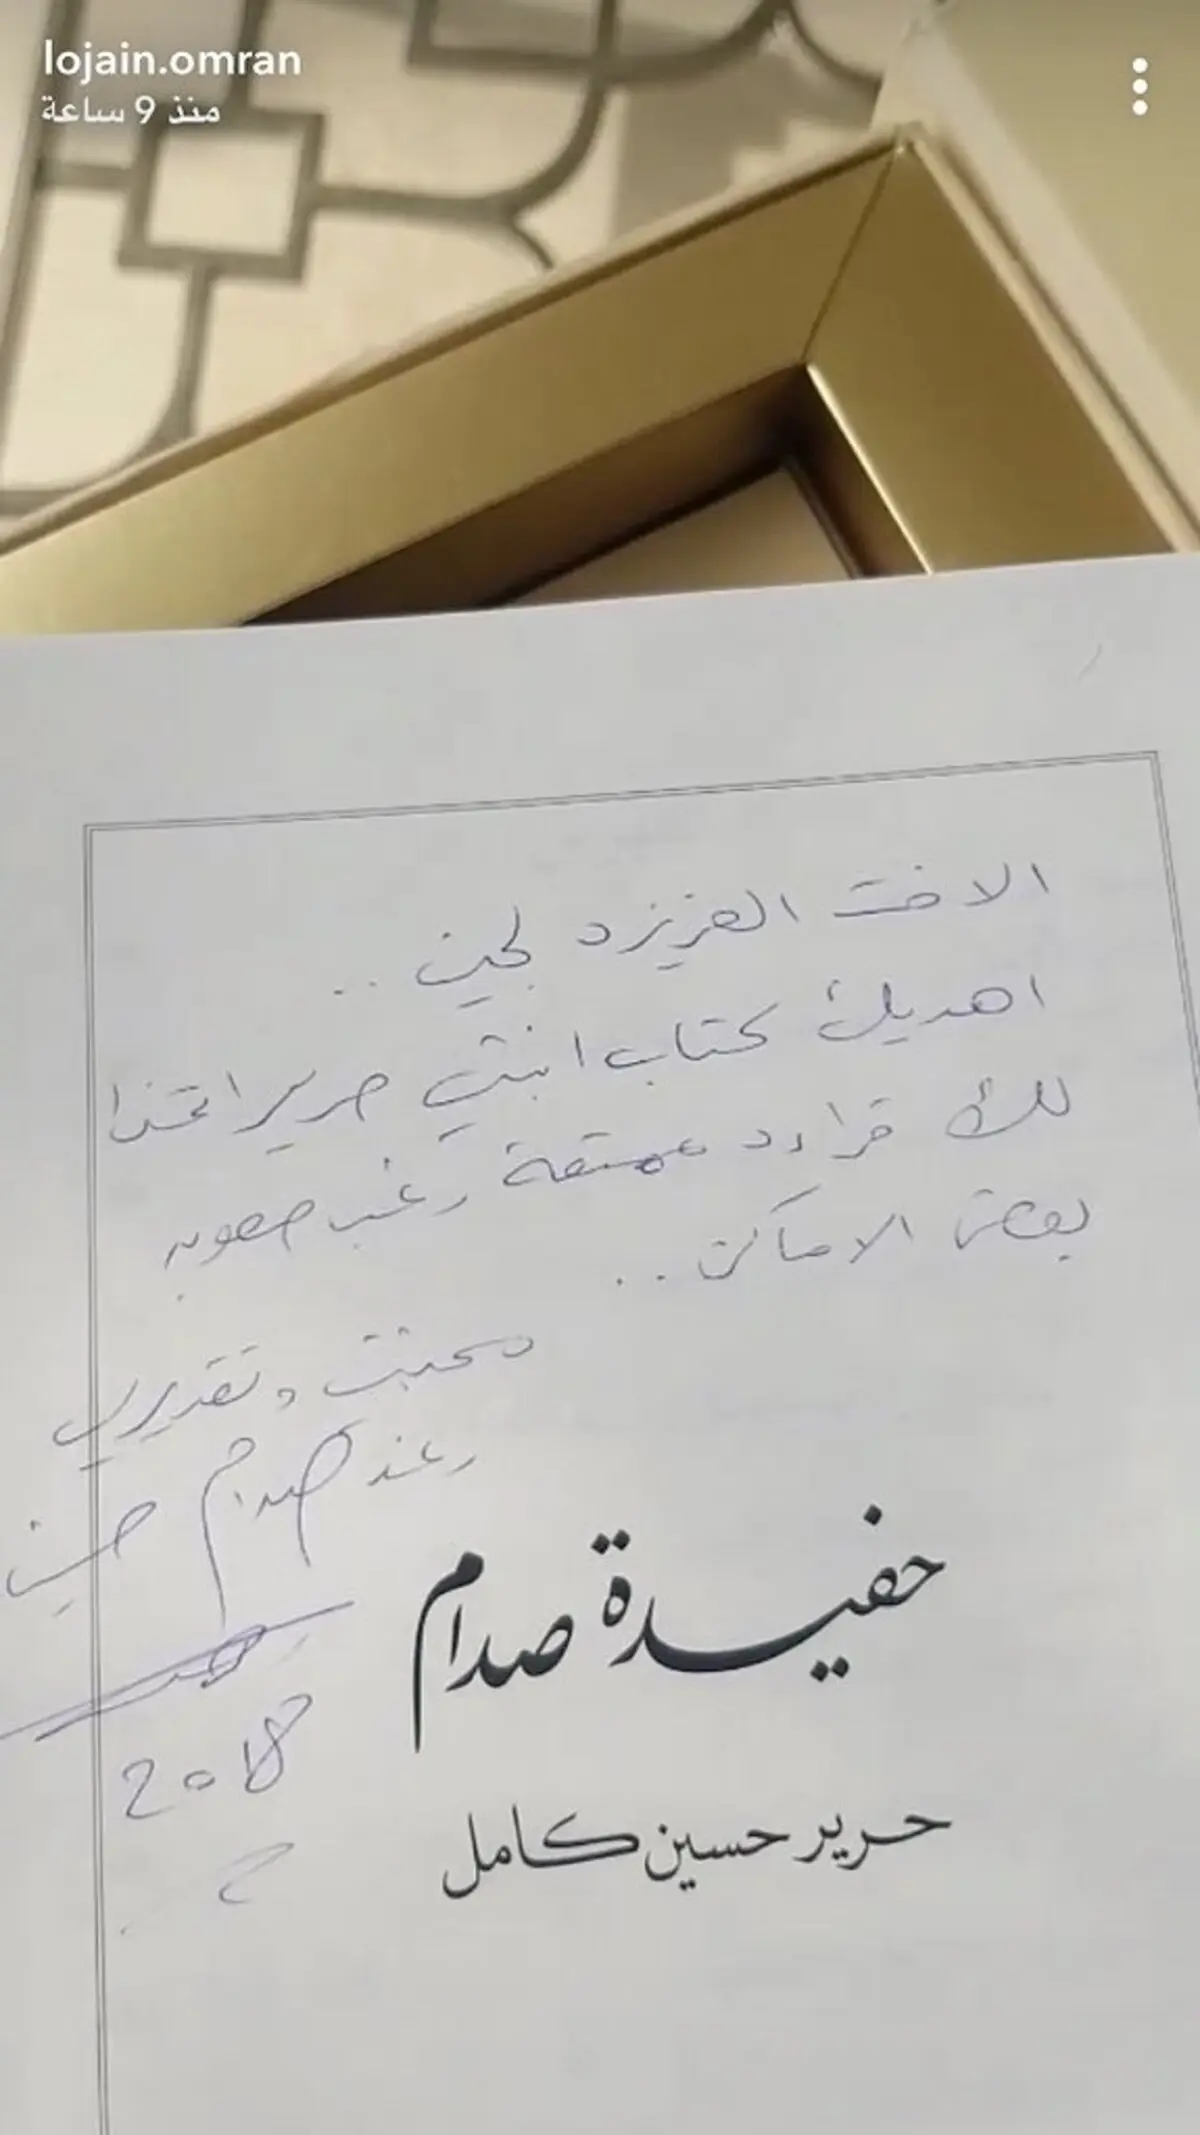 lojain.omran
منذ 9 ساعة
الاخت العزيزه لجين ..
اهديك كتاب ابنتي حرير اتمنا
لك قراءه ممتعة رغب صعوبه
بعض الاماكن ..
محبتي وتقديري
رغد صدام حسين
2018
حفيدة صدام
حرير حسين كامل